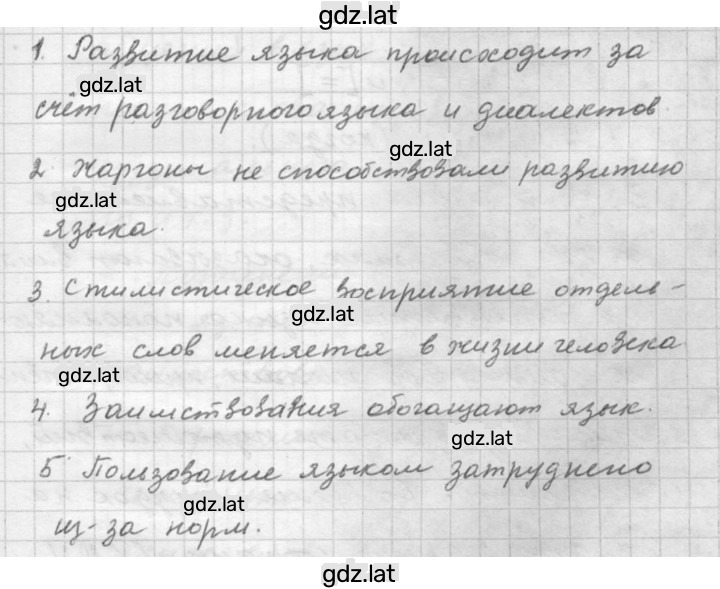 gdz.lat
1. Развитие языка происходит за
gdz.lat
счёт разговорного языка и диалектов.
gdz.lat
2. Жаргоны не способствовали развитию
gdz.lat
языка.
3. Стилистическое восприятие отдель-
gdz.lat
ных слов меняется в жизни человека
gdz.lat
4. Заимствования обогащают язык.
gdz.lat
5. Пользование языком затруднено
gdz.lat
из-за норм.
gdz.lat